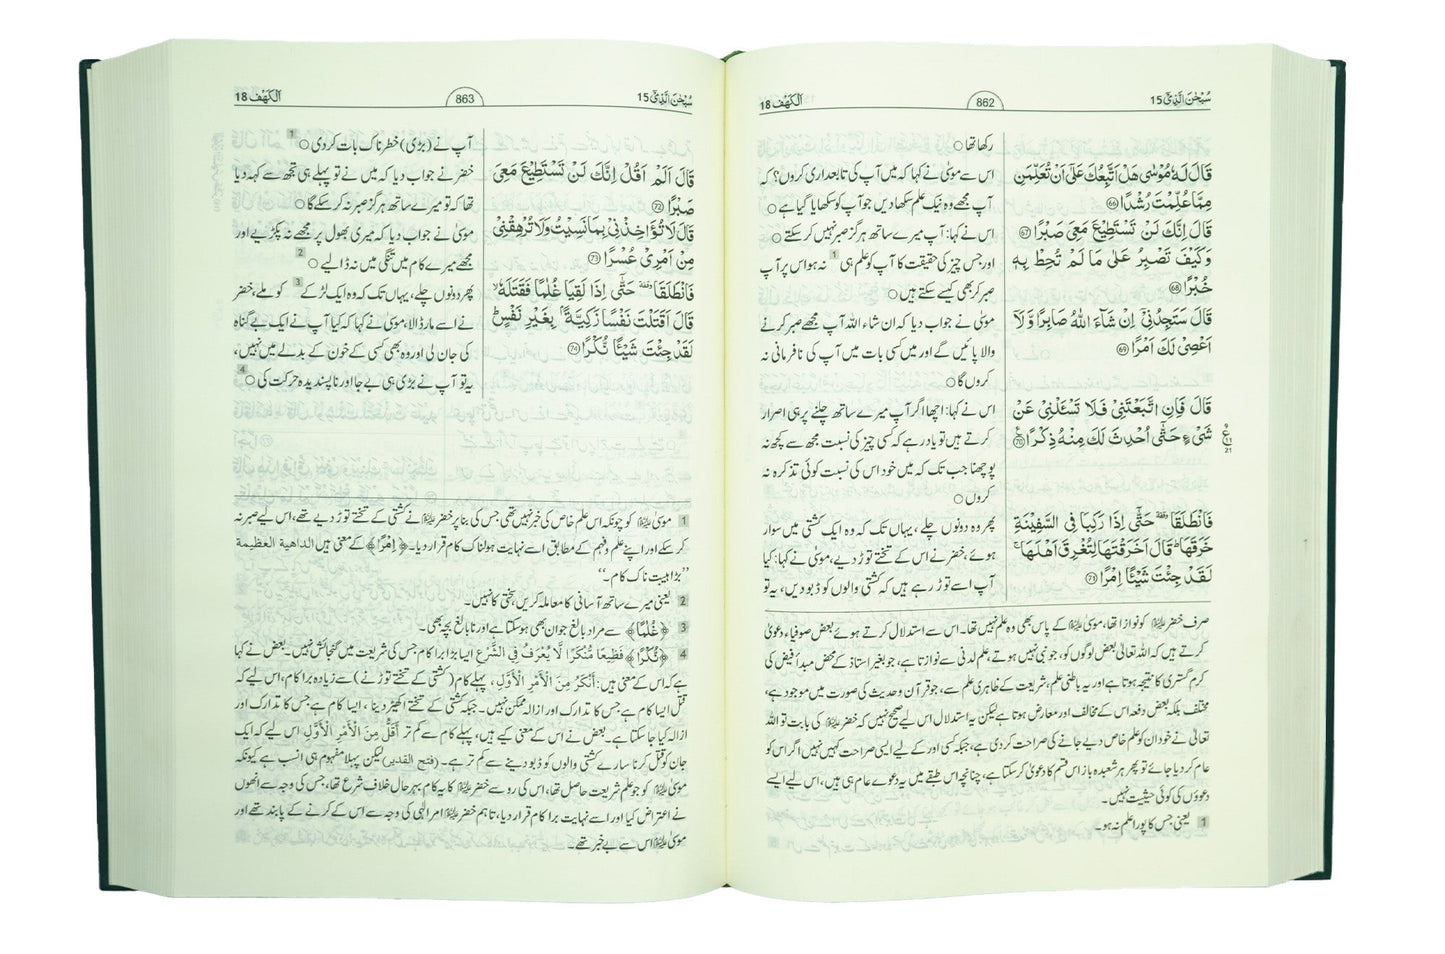 سُبْحٰنَ الَّذِیْٓ 15
862
اَلْكَهْف 18
قَالَ لَهٗ مُوْسٰى هَلْ اَتَّبِعُكَ عَلٰٓى اَنْ تُعَلِّمَنِ
مِمَّا عُلِّمْتَ رُشْدًا ﴿66﴾
قَالَ اِنَّكَ لَنْ تَسْتَطِیْعَ مَعِیَ صَبْرًا ﴿67﴾
وَ كَیْفَ تَصْبِرُ عَلٰى مَا لَمْ تُحِطْ بِهٖ
خُبْرًا ﴿68﴾
قَالَ سَتَجِدُنِیْۤ اِنْ شَآءَ اللّٰهُ صَابِرًا وَّ لَاۤ
اَعْصِیْ لَكَ اَمْرًا ﴿69﴾
قَالَ فَاِنِ اتَّبَعْتَنِیْ فَلَا تَسْـَٔلْنِیْ عَنْ
شَیْءٍ حَتّٰۤى اُحْدِثَ لَكَ مِنْهُ ذِكْرًا ﴿70﴾
ع 21
فَانْطَلَقَا ۥ حَتّٰۤى اِذَا رَكِبَا فِی السَّفِیْنَةِ
خَرَقَهَا ؕ قَالَ اَخَرَقْتَهَا لِتُغْرِقَ اَهْلَهَا ۚ
لَقَدْ جِئْتَ شَیْـًٔا اِمْرًا ﴿71﴾
رکھا تھا ○
اس سے موسیٰ نے کہا کہ میں آپ کی تابعداری کروں؟ کہ
آپ مجھے وہ نیک علم سکھا دیں جو آپ کو سکھایا گیا ہے ○
اس نے کہا: آپ میرے ساتھ ہرگز صبر نہیں کر سکتے ○
اور جس چیز کی حقیقت کا آپ کو علم ہی 1 نہ ہو اس پر آپ
صبر کر بھی کیسے سکتے ہیں ○
موسیٰ نے جواب دیا کہ ان شاء اللہ آپ مجھے صبر کرنے
والا پائیں گے اور میں کسی بات میں آپ کی نافرمانی نہ
کروں گا ○
اس نے کہا: اچھا اگر آپ میرے ساتھ چلنے پر ہی اصرار
کرتے ہیں تو یاد رہے کہ کسی چیز کی نسبت مجھ سے کچھ نہ
پوچھنا جب تک کہ میں خود اس کی نسبت کوئی تذکرہ نہ
کروں ○
پھر وہ دونوں چلے، یہاں تک کہ وہ ایک کشتی میں سوار
ہوئے، خضر نے اس کے تختے توڑ دیے، موسیٰ نے کہا: کیا
آپ اسے توڑ رہے ہیں کہ کشتی والوں کو ڈبو دیں، یہ تو
صرف خضر علیہ السلام کو نوازا تھا، موسیٰ علیہ السلام کے پاس بھی وہ علم نہیں تھا۔ اس سے استدلال کرتے ہوئے بعض صوفیاء دعویٰ
کرتے ہیں کہ اللہ تعالیٰ بعض لوگوں کو، جو نبی نہیں ہوتے، علم لدنی سے نوازتا ہے، جو بغیر استاذ کے محض مبدأ فیض کی
کرم گستری کا نتیجہ ہوتا ہے اور یہ باطنی علم، شریعت کے ظاہری علم سے، جو قرآن و حدیث کی صورت میں موجود ہے،
مختلف بلکہ بعض دفعہ اس کے مخالف اور معارض ہوتا ہے لیکن یہ استدلال اس لیے صحیح نہیں کہ خضر علیہ السلام کی بابت تو اللہ
تعالیٰ نے خود ان کو علم خاص دیے جانے کی صراحت کر دی ہے، جبکہ کسی اور کے لیے ایسی صراحت کہیں نہیں اگر اس کو
عام کر دیا جائے تو پھر ہر شعبدہ باز اس قسم کا دعویٰ کر سکتا ہے، چنانچہ اس طبقے میں یہ دعوے عام ہی ہیں، اس لیے ایسے
دعوؤں کی کوئی حیثیت نہیں۔
1 یعنی جس کا پورا علم نہ ہو۔
سُبْحٰنَ الَّذِیْٓ 15
863
اَلْكَهْف 18
قَالَ اَلَمْ اَقُلْ اِنَّكَ لَنْ تَسْتَطِیْعَ مَعِیَ
صَبْرًا ﴿72﴾
قَالَ لَا تُؤَاخِذْنِیْ بِمَا نَسِیْتُ وَ لَا تُرْهِقْنِیْ
مِنْ اَمْرِیْ عُسْرًا ﴿73﴾
فَانْطَلَقَا ۥ حَتّٰۤى اِذَا لَقِیَا غُلٰمًا فَقَتَلَهٗ ۙ
قَالَ اَقَتَلْتَ نَفْسًا زَكِیَّةًۢ بِغَیْرِ نَفْسٍ ؕ
لَقَدْ جِئْتَ شَیْـًٔا نُّكْرًا ﴿74﴾
آپ نے (بڑی) خطرناک بات کر دی 1 ○
خضر نے جواب دیا کہ میں نے تو پہلے ہی تجھ سے کہہ دیا
تھا کہ تو میرے ساتھ ہرگز صبر نہ کر سکے گا ○
موسیٰ نے جواب دیا کہ میری بھول پر مجھے نہ پکڑیے اور
مجھے میرے کام میں تنگی میں نہ ڈالیے 2 ○
پھر دونوں چلے، یہاں تک کہ وہ ایک لڑکے 3 کو ملے، خضر
نے اسے مار ڈالا، موسیٰ نے کہا کہ کیا آپ نے ایک بے گناہ
کی جان لی اور وہ بھی کسی کے خون کے بدلے میں نہیں،
یہ تو آپ نے بڑی ہی بے جا اور ناپسندیدہ حرکت کی 4 ○
1 موسیٰ علیہ السلام کو چونکہ اس علم خاص کی خبر نہیں تھی جس کی بنا پر خضر علیہ السلام نے کشتی کے تختے توڑ دیے تھے، اس لیے صبر نہ
کر سکے اور اپنے علم و فہم کے مطابق اسے نہایت ہولناک کام قرار دیا۔ ﴿اِمْرًا﴾ کے معنی ہیں الداهية العظيمة
’’بڑا ہیبت ناک کام۔‘‘
2 یعنی میرے ساتھ آسانی کا معاملہ کریں، سختی کا نہیں۔
3 ﴿غُلٰمًا﴾ سے مراد بالغ جوان بھی ہو سکتا ہے اور نابالغ بچہ بھی۔
4 ﴿نُّكْرًا﴾ فَظِيعًا مُّنْكَرًا لَّا يُعْرَفُ فِي الشَّرْعِ ایسا بڑا برا کام جس کی شریعت میں گنجائش نہیں۔ بعض نے کہا
ہے کہ اس کے معنی ہیں: أَنْكَرُ مِنَ الْأَمْرِ الْأَوَّلِ، پہلے کام (کشتی کے تختے توڑنے) سے زیادہ برا کام، اس لیے کہ
قتل ایسا کام ہے جس کا تدارک اور ازالہ ممکن نہیں۔ جبکہ کشتی کے تختے اکھیڑ دینا، ایسا کام ہے جس کا تدارک اور
ازالہ کیا جا سکتا ہے۔ بعض نے اس کے معنی کیے ہیں، پہلے کام سے کم تر أَقَلُّ مِنَ الْأَمْرِ الْأَوَّلِ اس لیے کہ ایک
جان کو قتل کرنا سارے کشتی والوں کو ڈبو دینے سے کم تر ہے۔ (فتح القدير) لیکن پہلا مفہوم ہی انسب ہے کیونکہ
موسیٰ علیہ السلام کو جو علم شریعت حاصل تھا، اس کی رو سے خضر علیہ السلام کا یہ کام بہرحال خلاف شرع تھا، جس کی وجہ سے انھوں
نے اعتراض کیا اور اسے نہایت برا کام قرار دیا، تاہم خضر علیہ السلام امر الٰہی کی وجہ سے اس کے کرنے کے پابند تھے اور
موسیٰ علیہ السلام اس سے بے خبر تھے۔